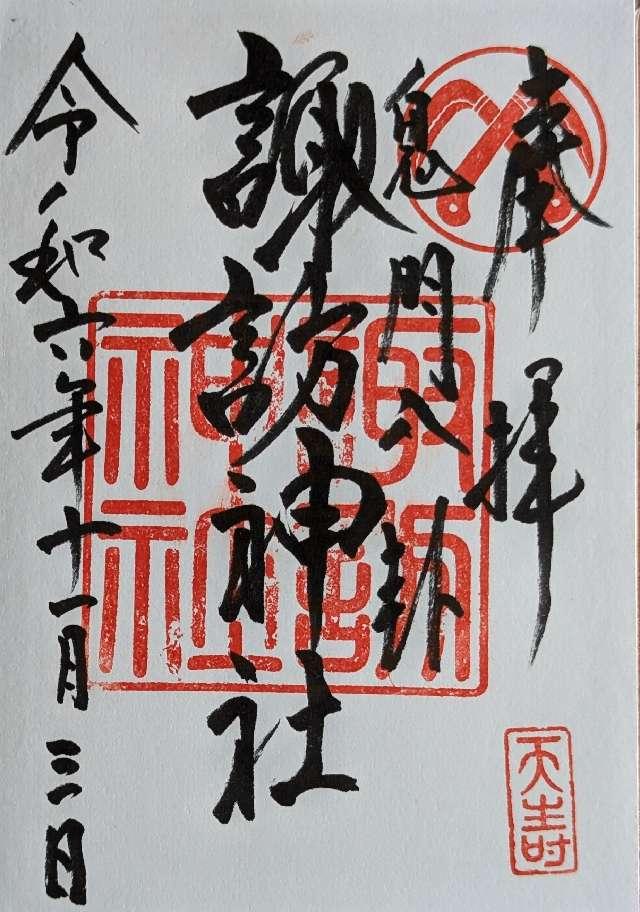 奉拝
鬼門八卦
諏訪神社
令和六年十一月三日
諏訪神社
天寿